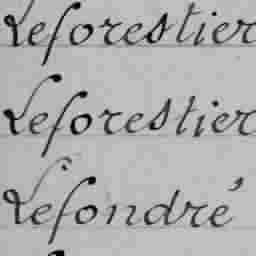 Leforestier
Leforestier
Lefondré